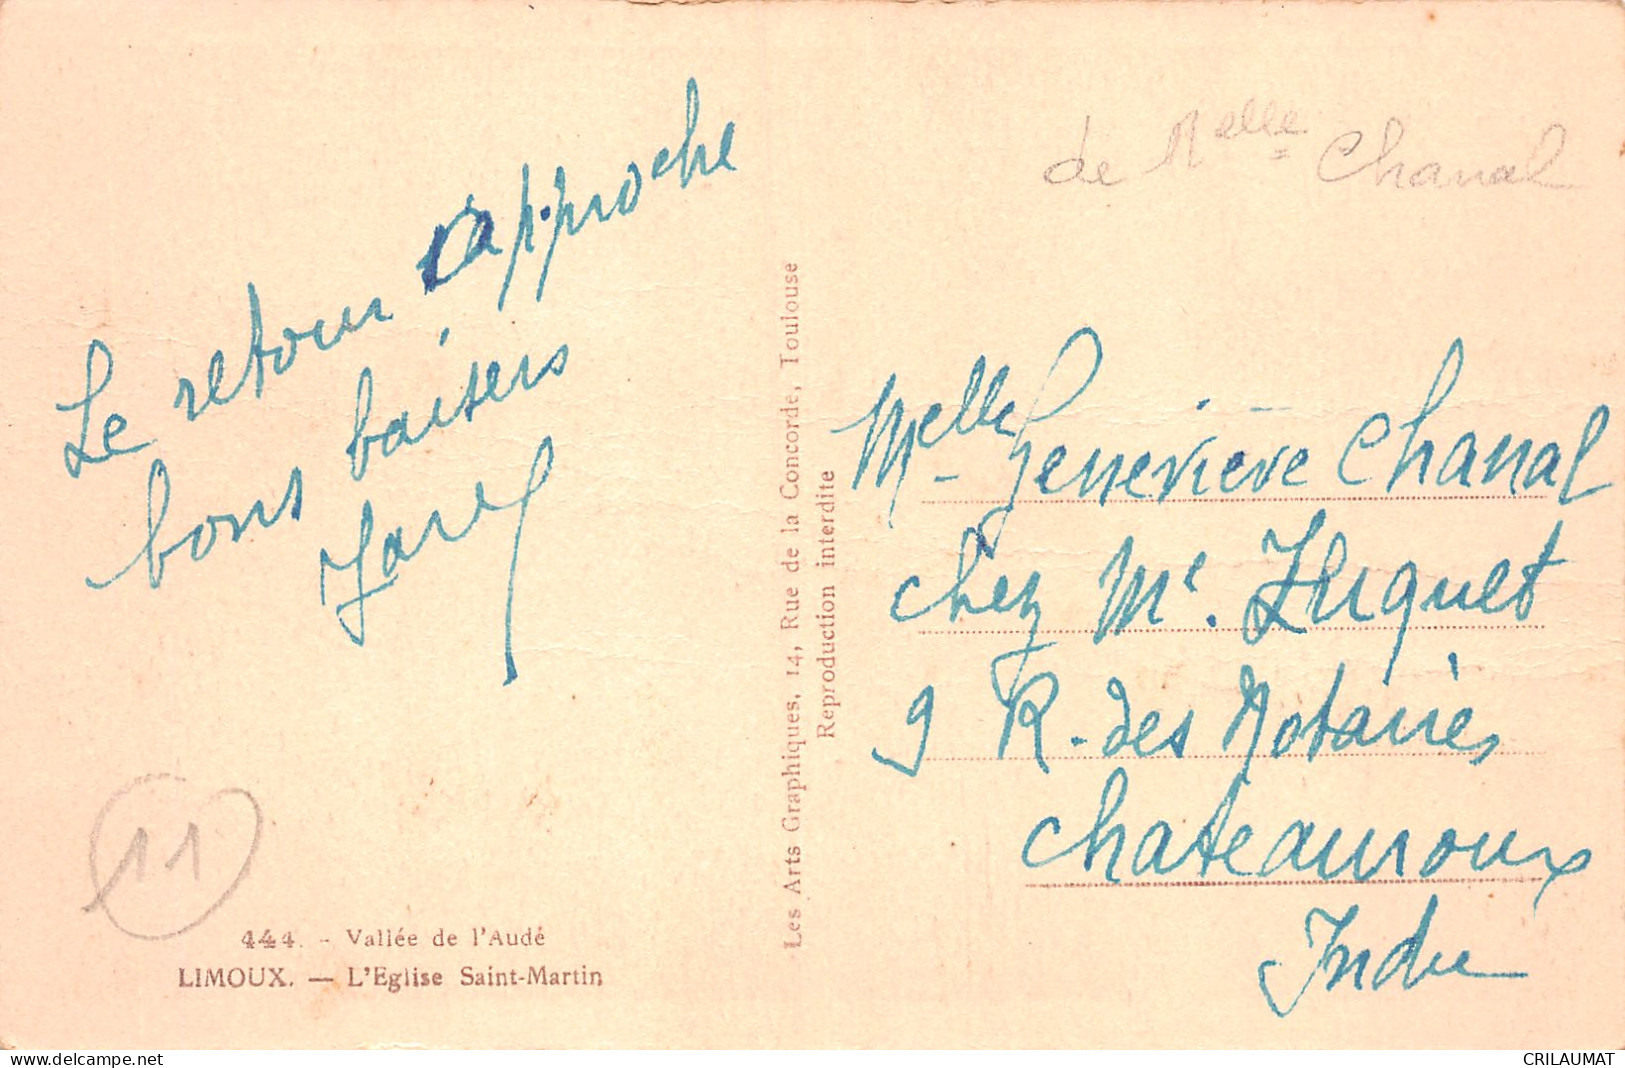 Le retour approche
bons baisers
de Melle Chanal
Les Arts Graphiques, 14, Rue de la Concorde, Toulouse
Reproduction interdite
Melle Geneviève Chanal
chez Me. Luquet
9 R. des Notaires
Chateauroux
Indre
11
444. - Vallée de l'Aude
LIMOUX. — L'Eglise Saint-Martin
CRILAUMAT